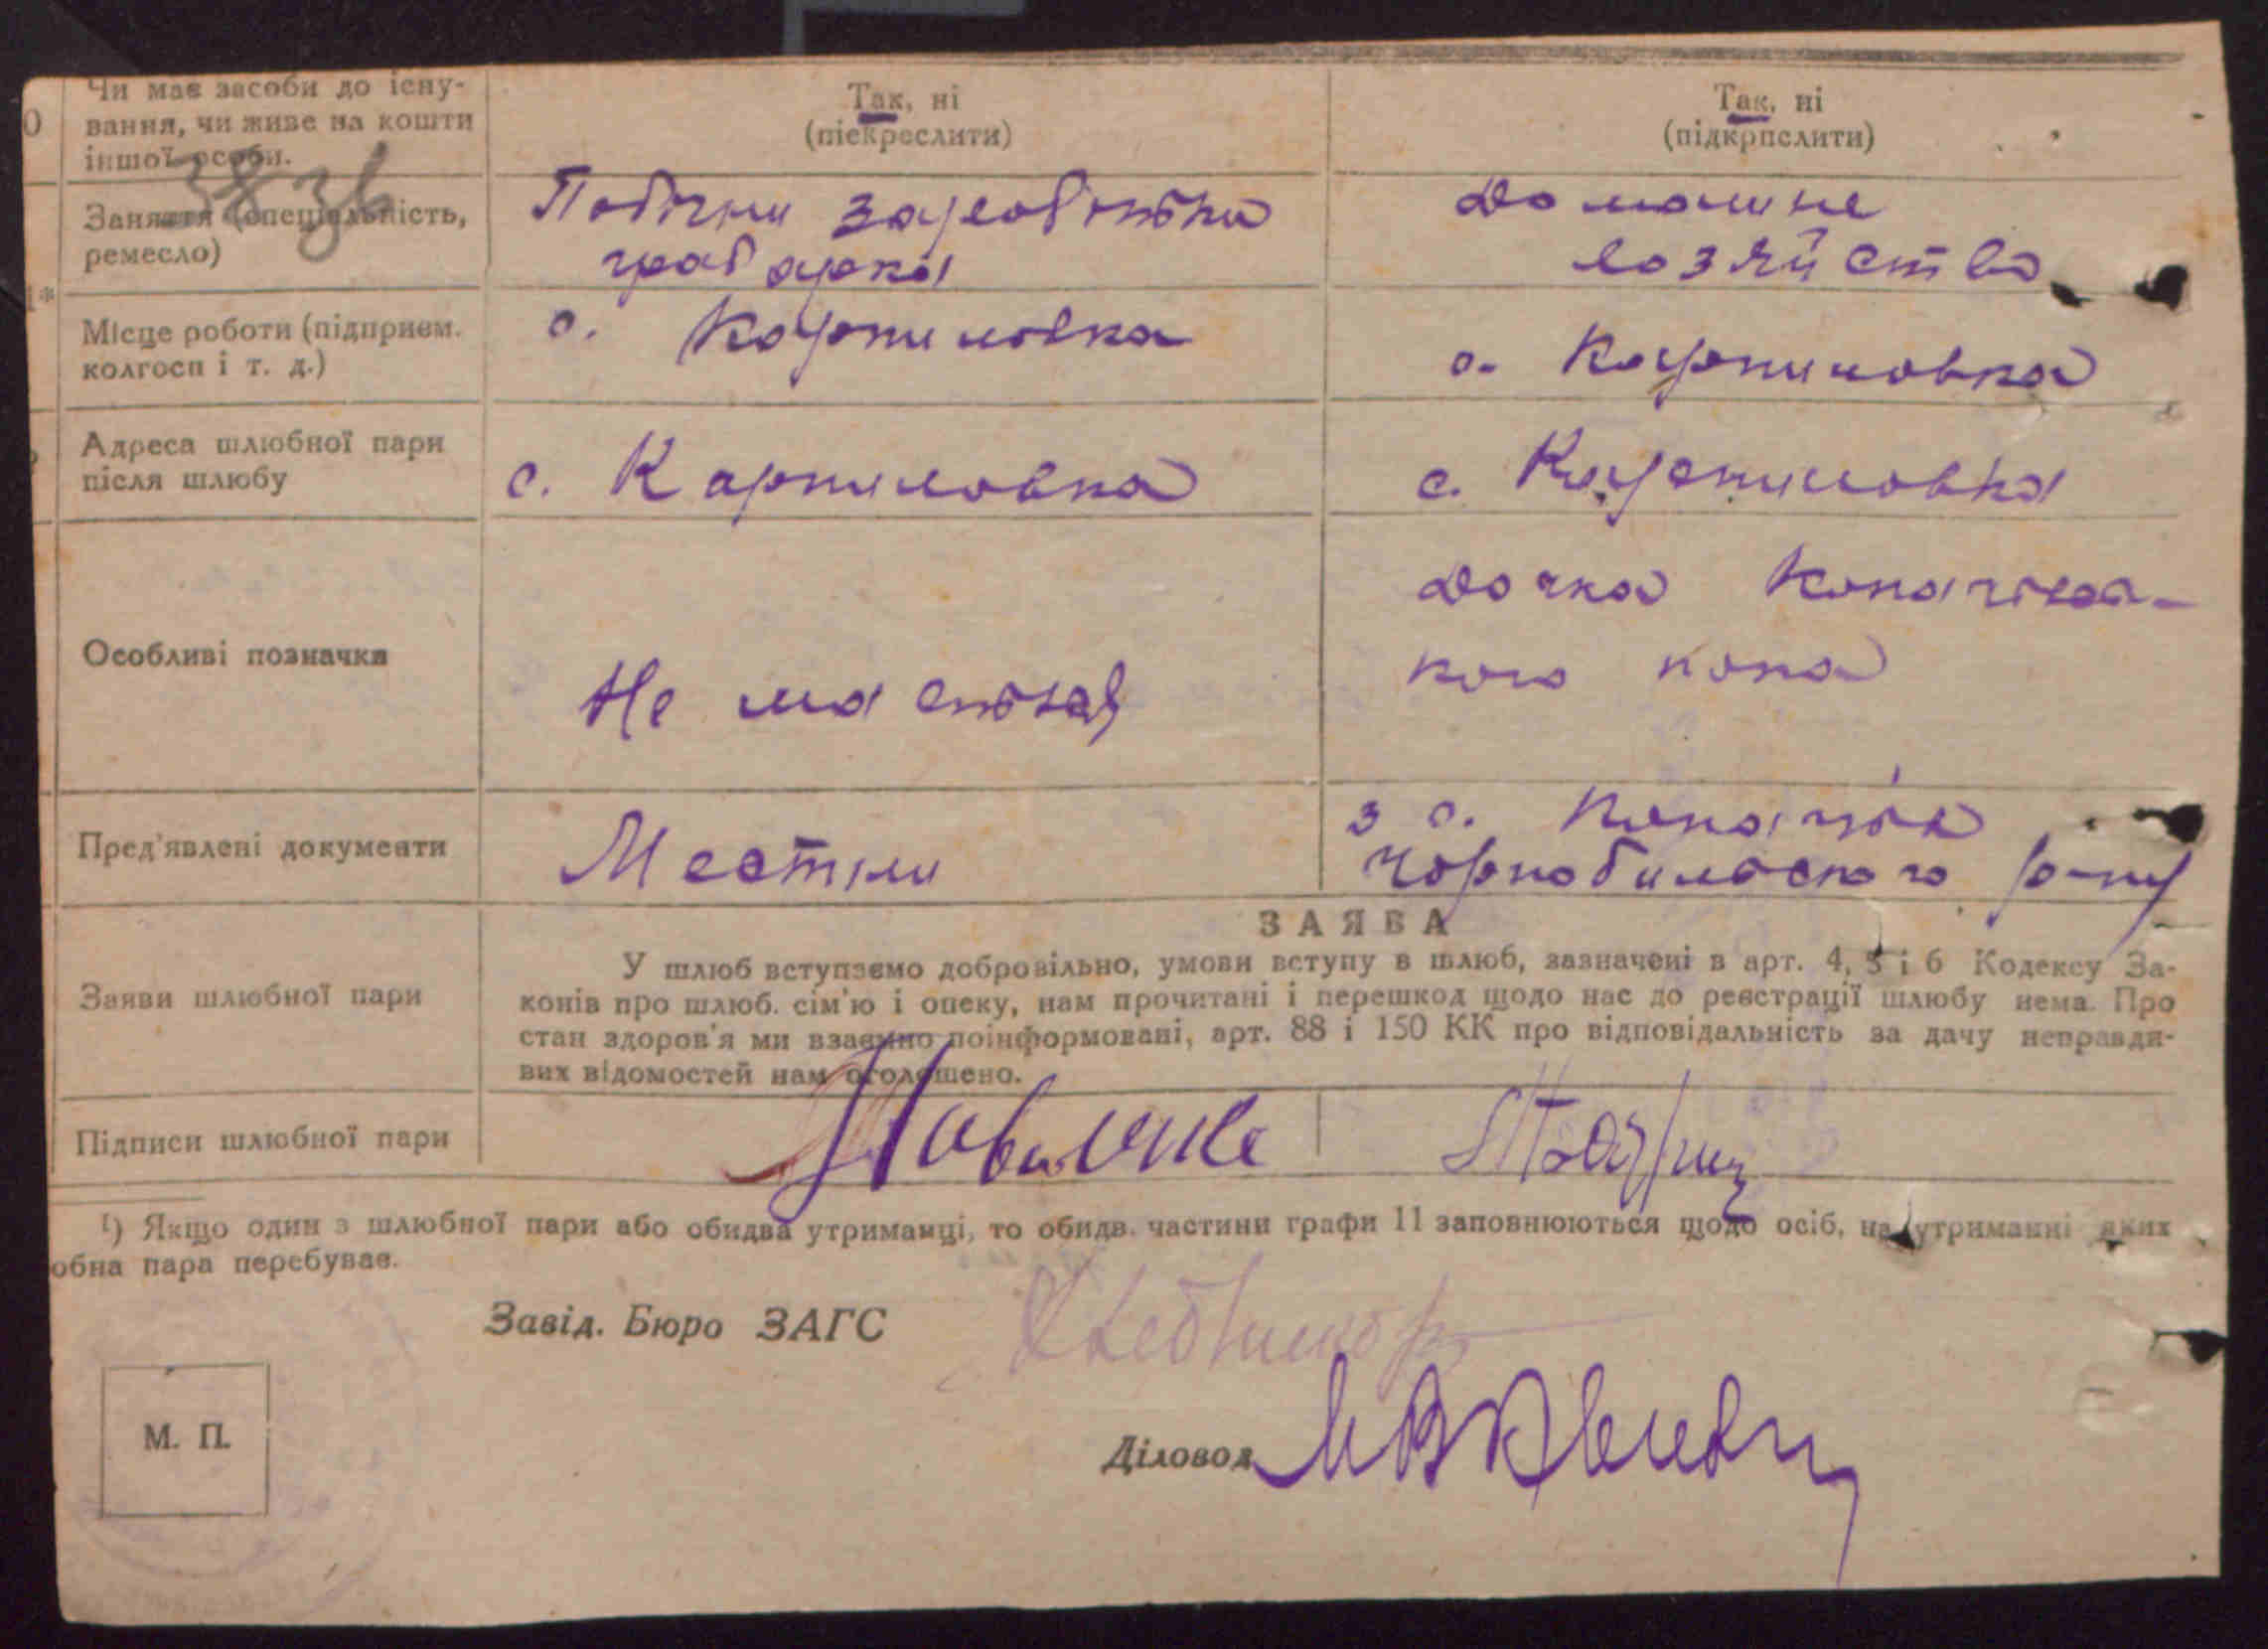 Чи має засоби до існу-
вання, чи живе на кошти
іншої особи.
Так, ні
(піекреслити)
Так, ні
(підкрпслити)
3836
Заняття (спеціальність,
ремесло)
Побічни заробітки
грабарка
Домашне
хозяйство
Місце роботи (підприєм.
колгосп і т. д.)
с. Карпиловка
с. Карпиловка
Адреса шлюбної пари
після шлюбу
с. Карпиловка
с. Карпиловка
Особливі позначки
Не ма
Дочка Копачівс-
кого попа
з с. Копачів
Чорнобильского р-ну
Пред'явлені документи
Местни
Заяви шлюбної пари
ЗАЯВА
У шлюб вступаємо добровільно, умови вступу в шлюб, зазначені в арт. 4, 5 і 6 Кодексу За-
конів про шлюб. сім'ю і опеку, нам прочитані і перешкод щодо нас до реєстрації шлюбу нема. Про
стан здоров'я ми взаємно поінформовані, арт. 88 і 150 КК про відповідальність за дачу неправди-
вих відомостей нам оголошено.
Підписи шлюбної пари
¹) Якщо один з шлюбної пари або обидва утриманці, то обидв. частини графи 11 заповнюються щодо осіб, на утриманні яких
обна пара перебуває.
Завід. Бюро ЗАГС
Діловод
М. П.